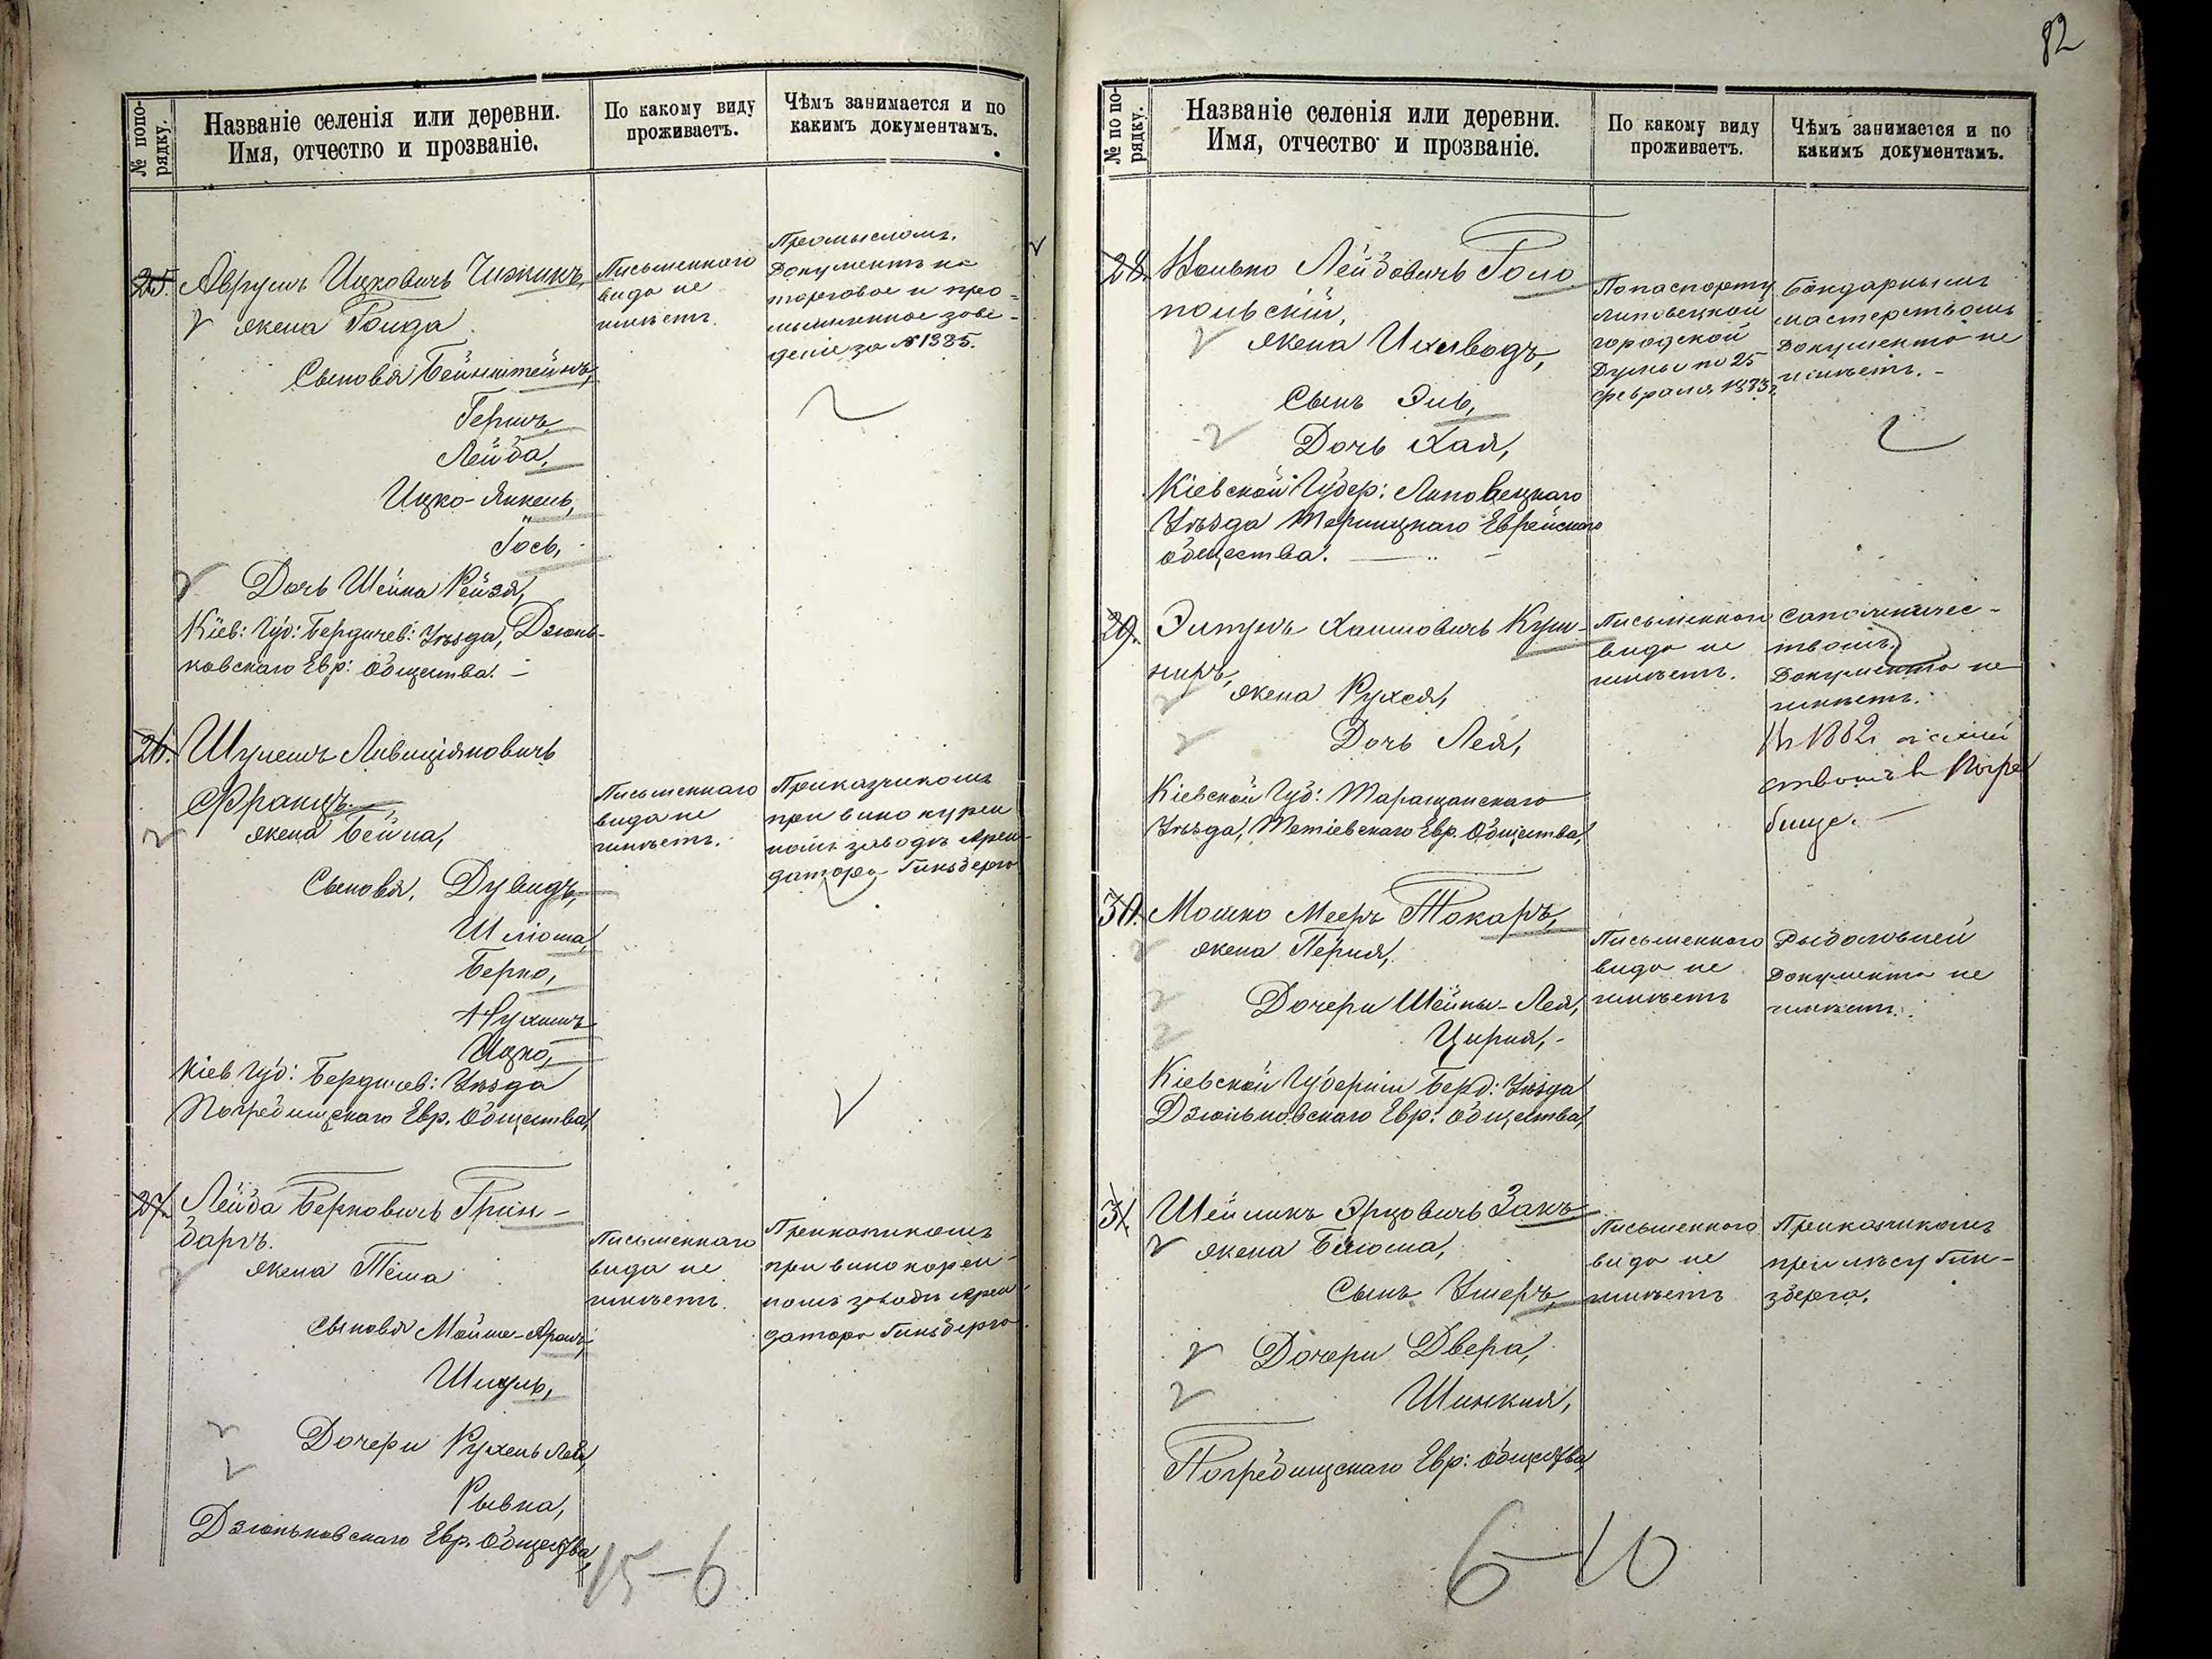 № попо-
рядку.
Названіе селенія или деревни.
Имя, отчество и прозваніе.
По какому виду
проживаетъ.
Чѣмъ занимается и по
какимъ документамъ.
25. Аврумъ Ицковичъ Чижикъ,
жена Голда
Сыновья Бейнштейнъ,
Гершъ,
Лейба,
Ицко-Янкель,
Іось,
Дочь Шейна Рейзя,
Кіев: Губ: Бердичев: Уѣзда, Дзюнь-
ковскаго Евр: Общества. –
Письменнаго
вида не
имѣетъ.
Промысломъ.
Документъ на
торговое и про-
мышленное заве-
деніе за №1385.
26. Шулемъ
Францъ,
жена Бейла,
Сыновья, Дувидъ,
Шлюма,
Берко,
Нухимъ
Ицко,
Кіев Губ: Бердичев: Уѣзда
Погребищскаго Евр. Общества,
Письменнаго
вида не
имѣетъ.
Приказчикомъ
при винокурен
номъ заводѣ Арен-
датора Гинзберга
27. Лейба Берковичъ Грин-
баргъ.
жена Тема
Сыновья Мойше-Аронъ,
Шмуль,
Дочери Рухель Лея,
Рывка,
Дзюньковскаго Евр. Общества,
Письменнаго
вида не
имѣетъ.
Приказчикомъ
при винокурен-
номъ заводѣ Арен-
датора Гинзберга.
15-6
82
№ по по-
рядку.
Названіе селенія или деревни.
Имя, отчество и прозваніе.
По какому виду
проживаетъ.
Чѣмъ занимается и по
какимъ документамъ.
28. Волько Лейбовичъ Голо
польскій,
жена
Сынъ Эль,
Дочь Хая,
Кіевской Губер: Липовецкаго
Уѣзда Еврейскаго
общества.
По паспорту
Липовецкой
городской
Думы по 25
февраля 1883г.
Бондарнымъ
мастерствомъ
Документа не
имѣетъ. –
29. Хаимовичъ Куш-
ниръ,
жена Рухля,
Дочь Лея,
Кіевской Губ: Таращанскаго
Уѣзда, Тетіевскаго Евр. Общества,
Письменнаго
вида не
имѣетъ.
Сапожничес-
твомъ.
Документа не
имѣетъ.
1882
въ Погре
бище.
30. Мошко Мееръ Токаръ,
жена Перля,
Дочери Шейны-Лея,
Цирля, -
Кіевской Губерніи Берд: Уѣзда
Дзюньковскаго Евр: Общества,
Письменнаго
вида не
имѣетъ
Рыболовлей
Документа не
имѣетъ.
31. Шейликъ Эрцовичъ Закъ
жена Блюма,
Сынъ Ушеръ,
Дочери Двера,
Шинкля,
Погребищскаго Евр: Общества,
Письменнаго
вида не
имѣетъ
Приказчикомъ
при лѣсу Гин-
зберга.
6-10